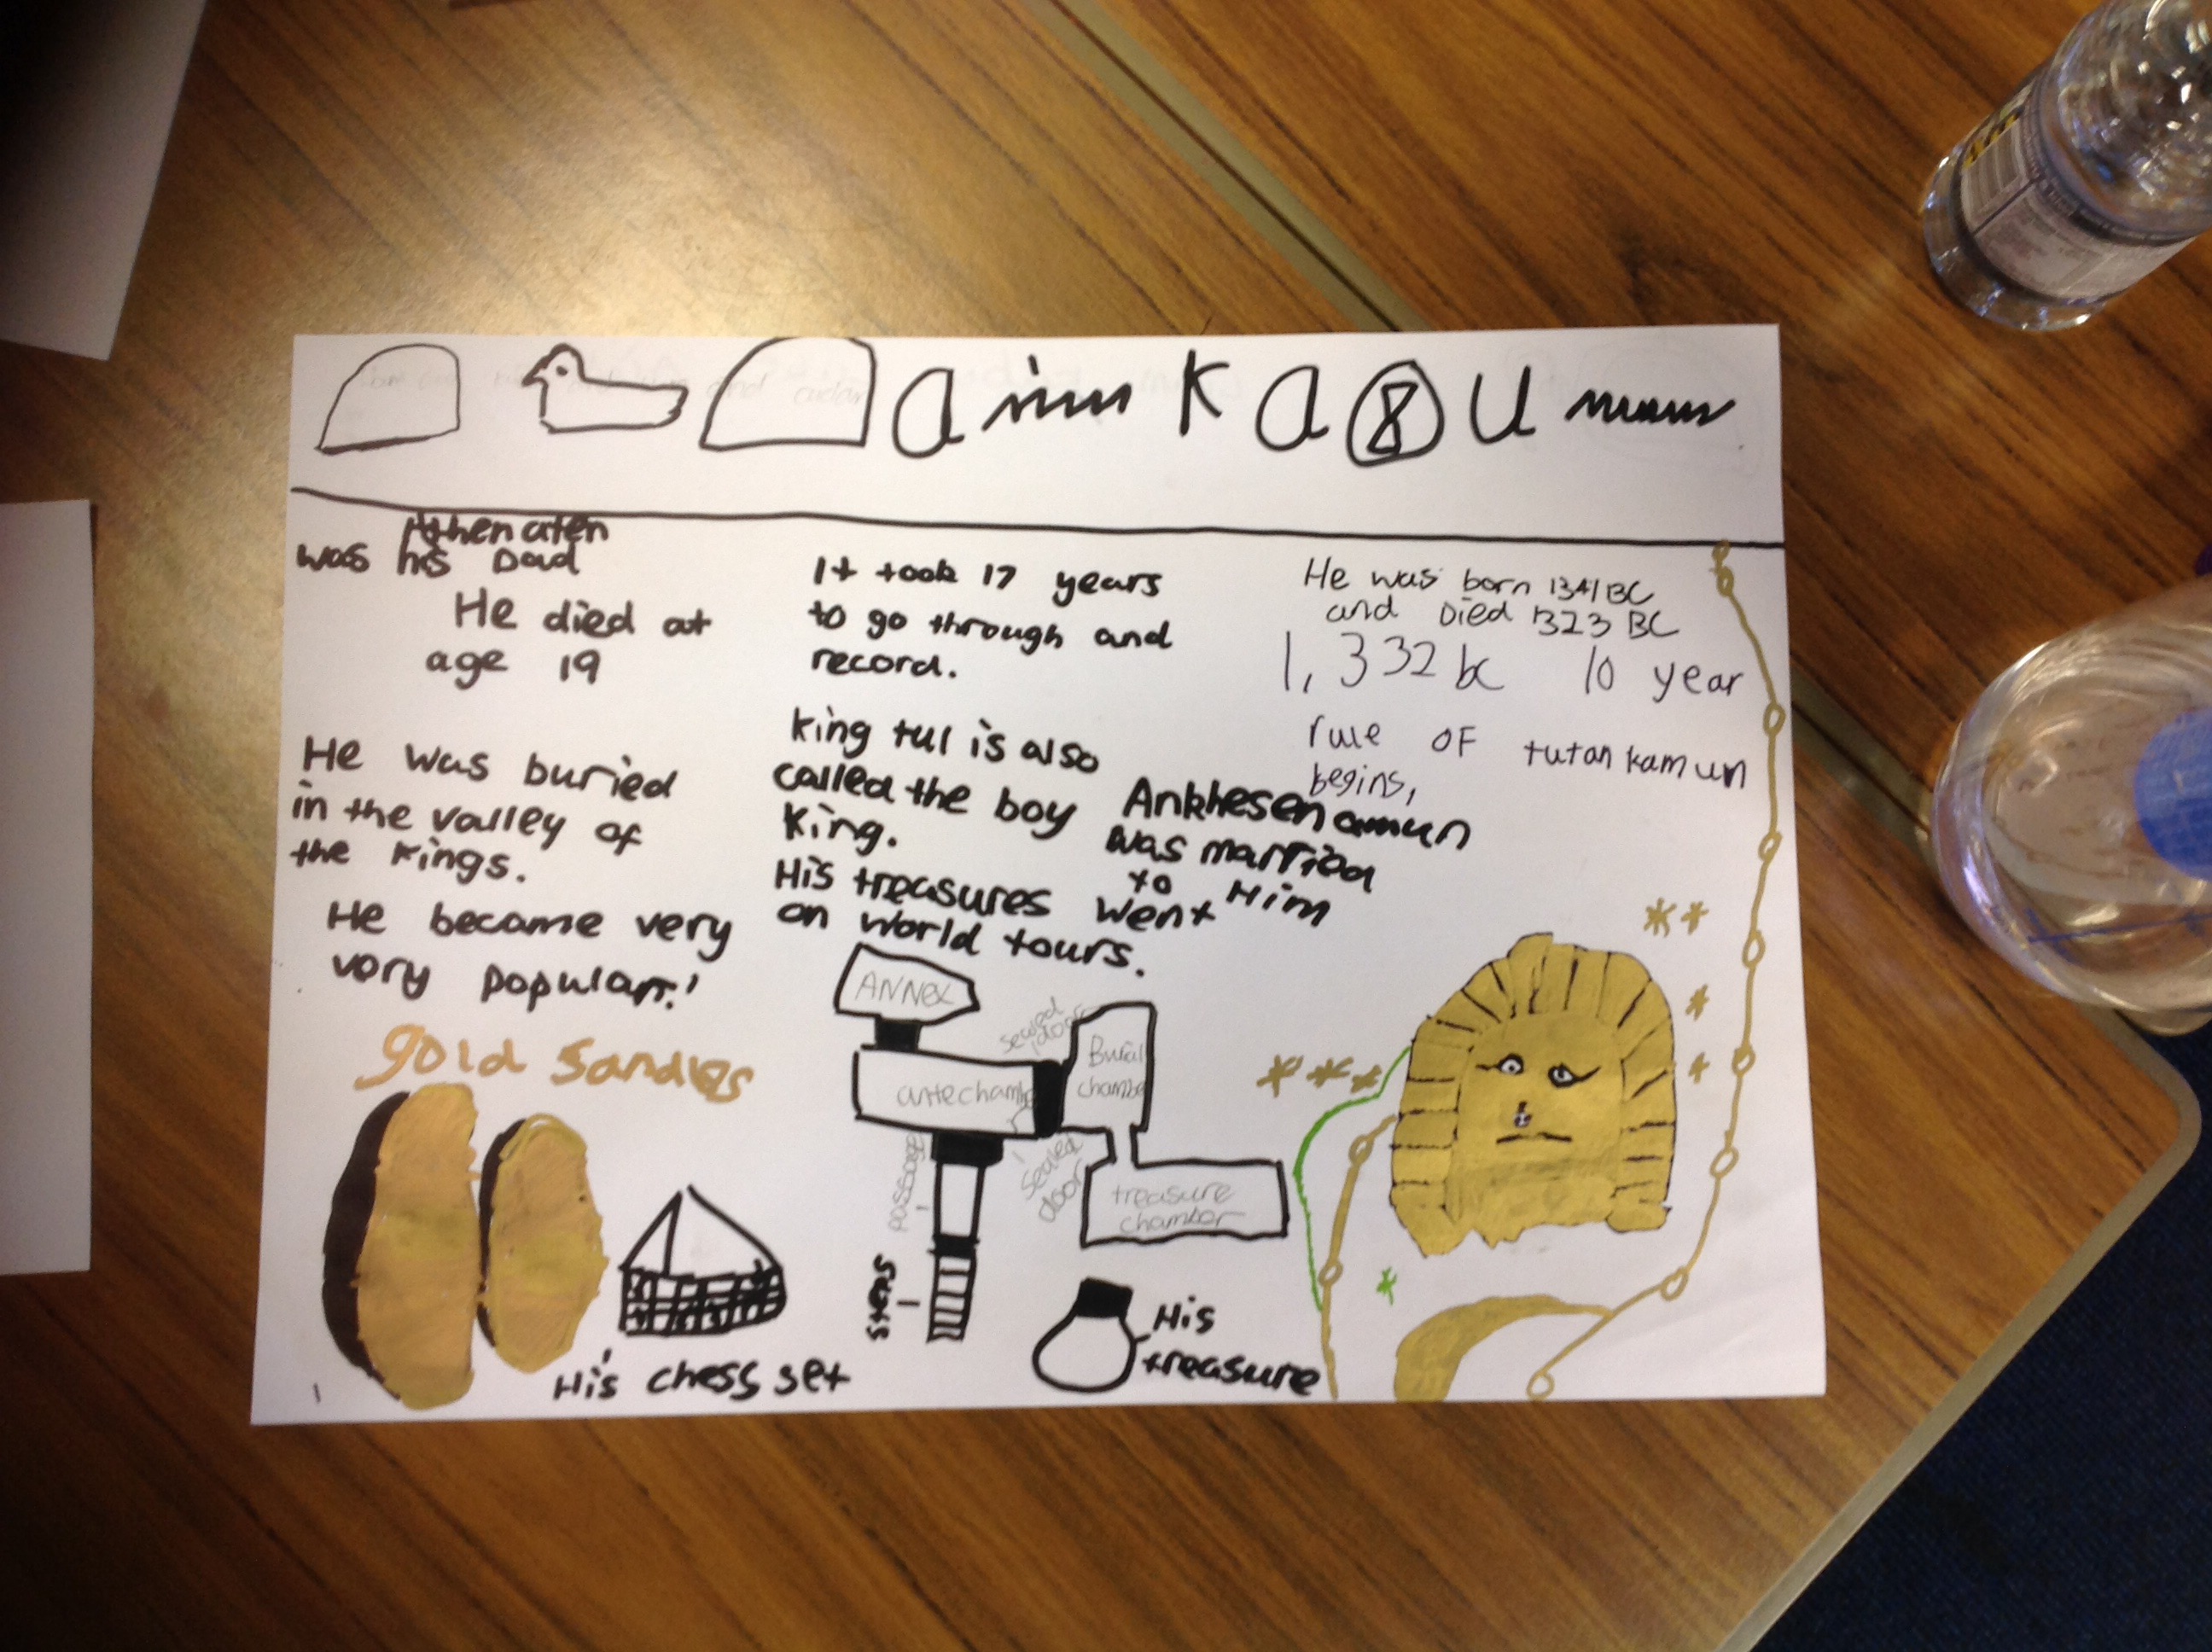 a K a U
Athenaten
was his Dad
He died at
age 19
He was buried
in the valley of
the Kings.
He became very
vory popular.!
gold Sandles
His chess set
It took 17 years
to go through and
record.
King tut is also
called the boy
King.
His treasures went
on world tours.
Ankhesenamun
was married
to Him
He was born 1341BC
and Died 1323 BC
1,332 bc 10 year
rule OF tutankamun
begins,
ANNex
sealed
door
Burial
chamber
antechamber
passage
sealed
door
treasure
chambor
His
treasure